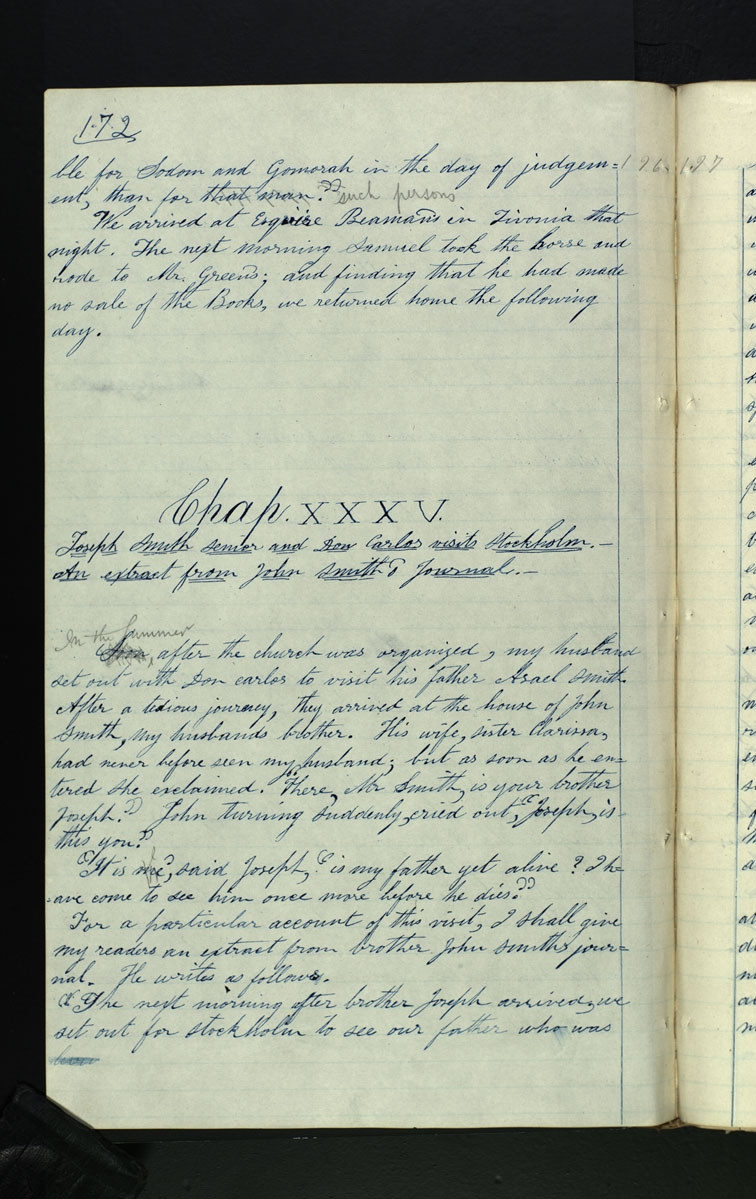 172
ble for Sodom and Gomorah in the day of judgem= 196-197
ent, than for that man." such persons
We arrived at Esquire Beaman's in Livonia that
night. The next morning Samuel took the horse and
rode to Mr. Green's; and finding that he had made
no sale of the Books, we returned home the following
day.
Chap. XXXV.
Joseph Smith senior and Don Carlos visits Stockholm.—
An extract from John Smith's Journal.—
In the Summer
after the church was organized, my husband
set out with Don carlos to visit his father Asael Smith.
After a tedious journey, they arrived at the house of John
Smith, my husbands brother. His wife, sister Clarissa,
had never before seen my husband; but as soon as he en=
tered she exclaimed. "There, Mr Smith, is your brother
Joseph." John turning suddenly, cried out, "Joseph, is
this you?"
"It is me", said Joseph, "is my father yet alive? I h=
ave come to see him once more before he dies."
For a particular account of this visit, I shall give
my readers an extract from brother John Smith's jour=
nal. He writes as follows.
"The next morning after brother Joseph arrived, we
set out for Stockholm to see our father who was